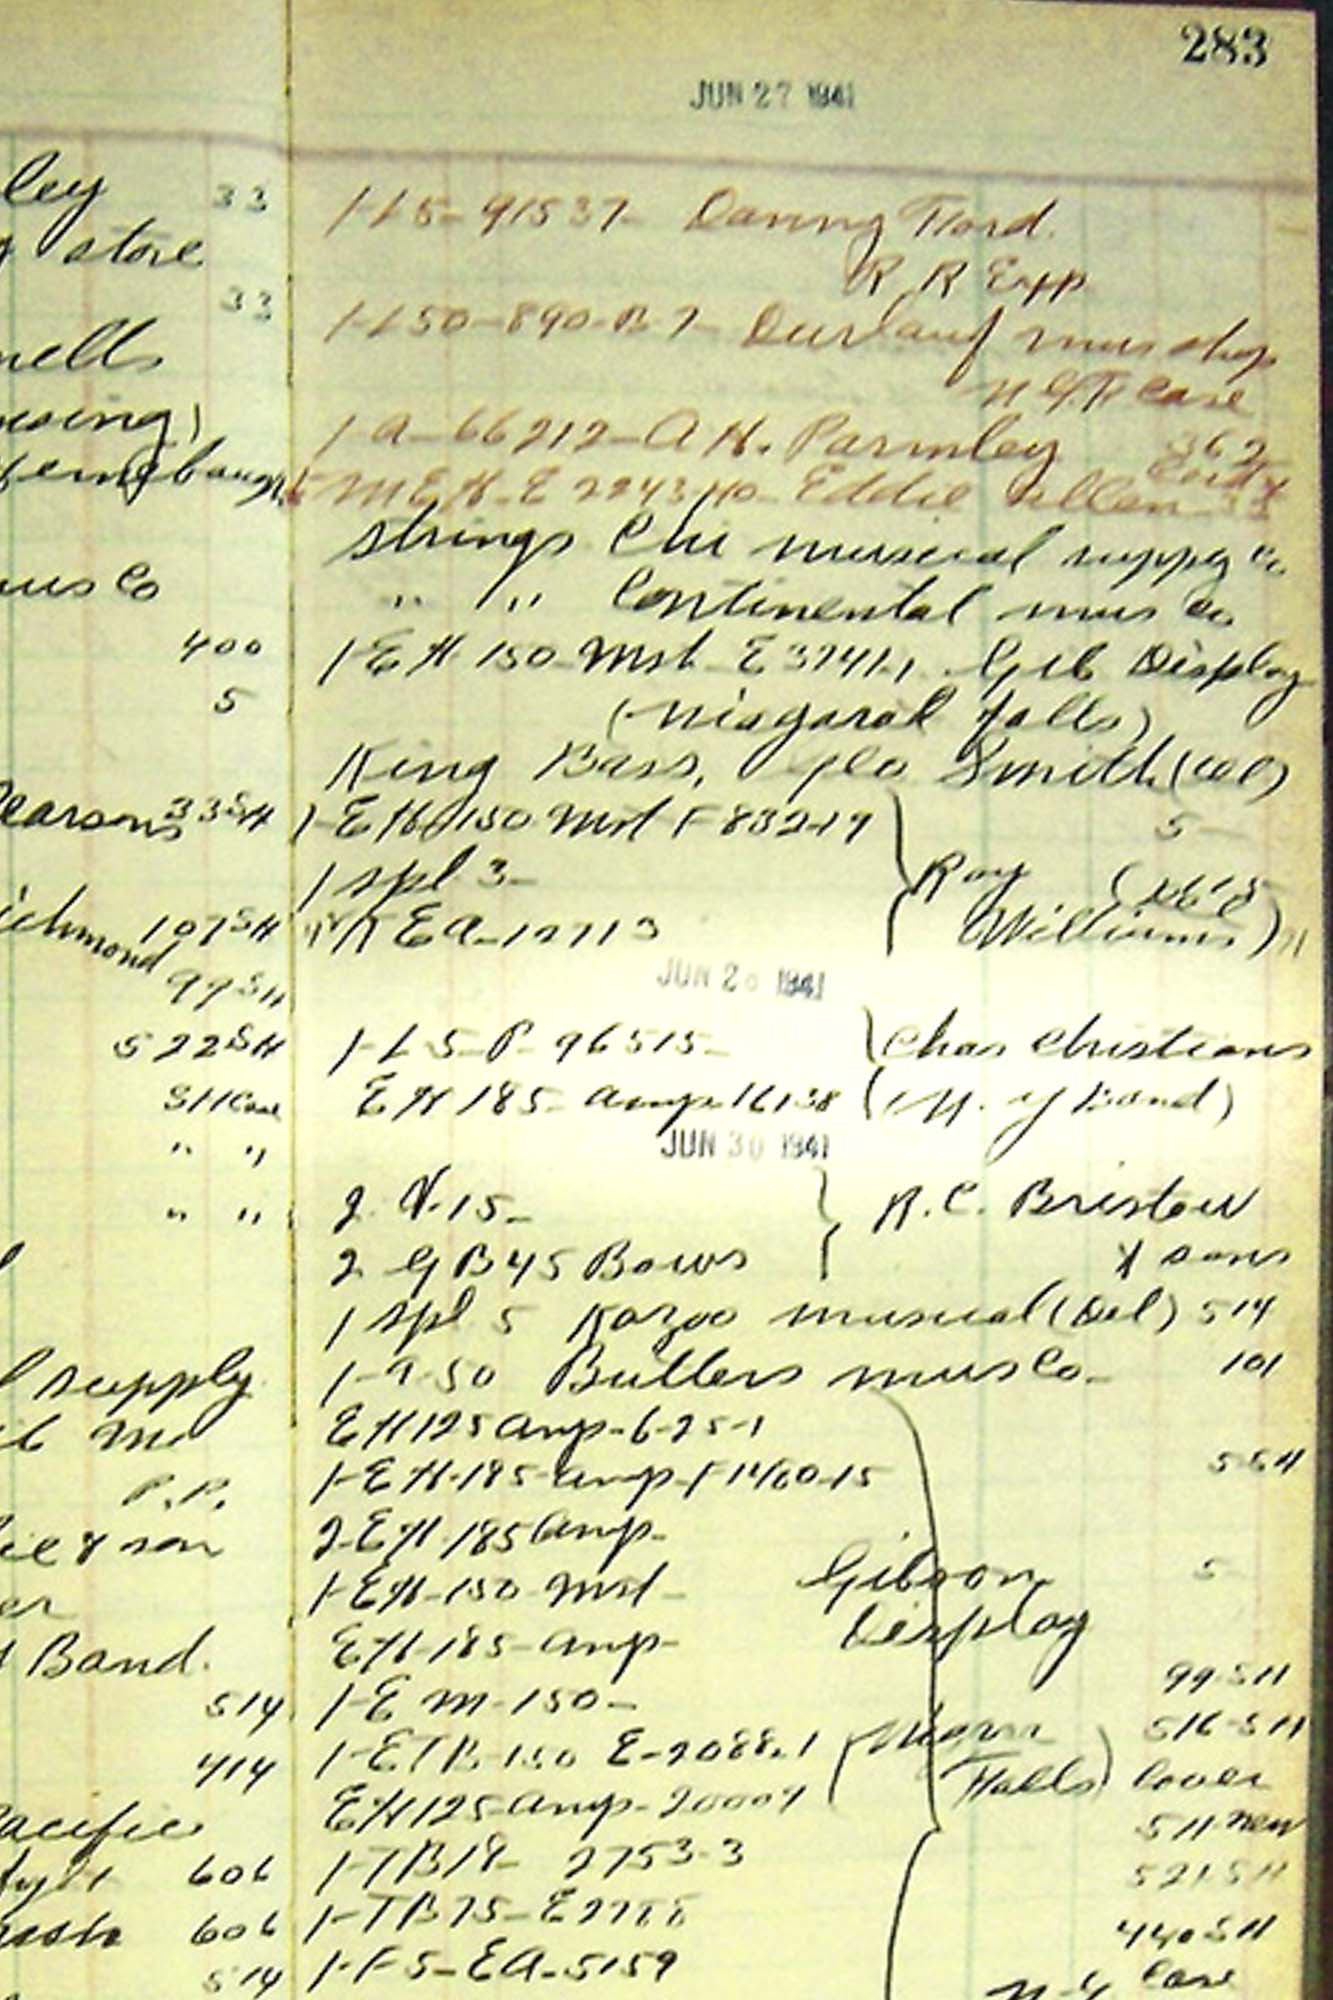 283
JUN 27 1941
ley 33
store
33
nells
400
5
Pearsons 33SH
ichmond 107SH
99SH
522SH
SH Case
" "
" "
supply
P.P.
er
Band.
514
414
Pacific
606
606
514
1-L5-91537- Danny Ford.
R R Exp
1-L50-890-B7- Durlauf mus shop
Case
1-A-66212-A H. Parmley 362
Eddie Allen 33
strings Chi musical supply Co
" " Continental mus Co
1-EH 150 Mst E3741-1 Gib Display
(Niagara Falls)
King Bass, Geo Smith (Del)
1-EH 150 Mst F83219 5-
1 spl 3- Roy
EA-12713 Williams)
JUN 28 1941
1-L5-P-96515- Chas Christians
EH 185- amp-16138 (N. Y Band)
JUN 30 1941
2 V-15- R. C. Bristow
2 GB45 Bows & sons
1 spl 5 Kazoo musical (Del) 514
1-A-50 Butlers mus Co- 101
EH125 amp-6-25-1
1-EH-185-amp-F1460-15 55H
2-EH-185 amp-
1-EH-150 Mst- Gibson 5
EH-185-amp- Display
1-E M-150- 99-SH
1-ETB-150 E-2088-1 (Niagra 516-SH
EH125-amp-20009 Falls) Cover
SH new
1-TB18- 2753-3 521SH
1-TB75-E2788 440SH
1-F5-EA-5159 N.Y Case